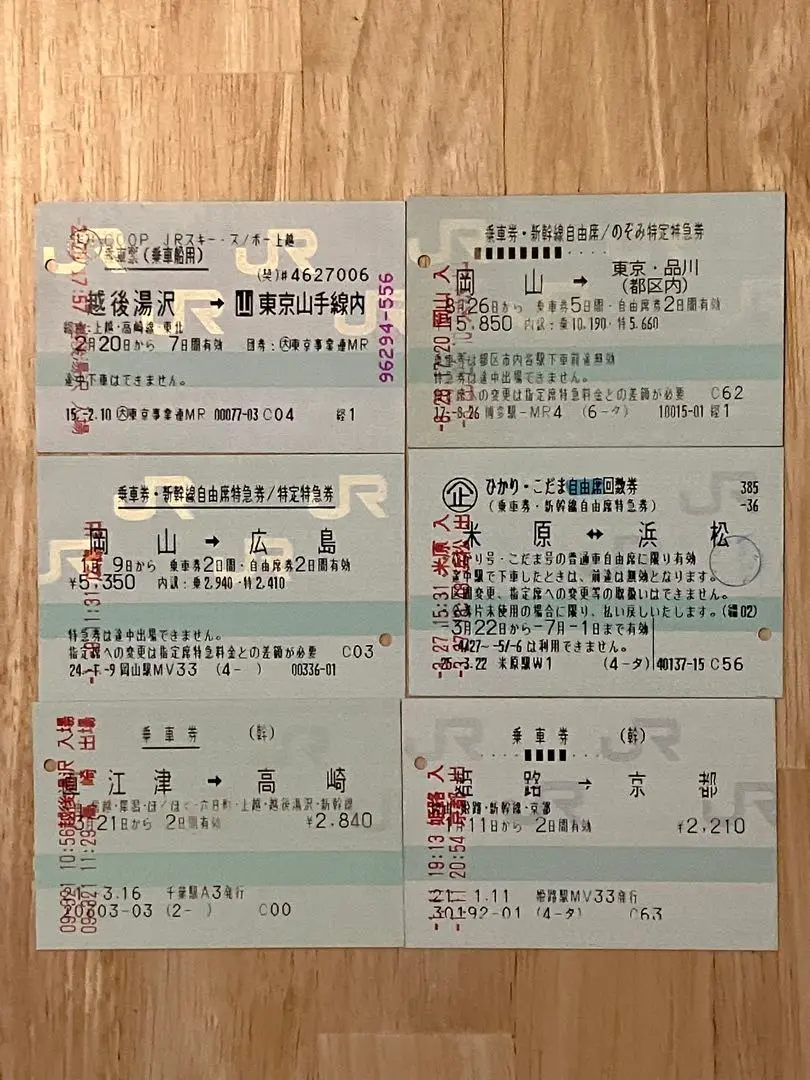 COOP JRスキー・スノボー上越
乗車票(乗車船用)
(契)#4627006
越後湯沢 → 山 東京山手線内
経由:上越・高崎線・東北
2月20日から 7日間有効 団券:大東京事業連MR
途中下車はできません。
15.-2.10 大東京事業連MR 00077-03 C04 経1
96294-556
乗車券・新幹線自由席/のぞみ特定特急券
岡 山 → 東京・品川
(都区内)
月26日から 乗車券5日間・自由席券2日間有効
15,850 内訳:乗10,190・特5,660
乗車券は都区市内各駅下車前途無効
特急券は途中出場できません。
指定席への変更は指定席特急料金との差額が必要 C62
17.-8.26 博多駅-MR4 (6-タ) 10015-01 経1
岡山 入
乗車券・新幹線自由席特急券/特定特急券
岡 山 → 広 島
月 9日から 乗車券2日間・自由席券2日間有効
¥5,350 内訳:乗2,940・特2,410
特急券は途中出場できません。
指定席への変更は指定席特急料金との差額が必要 C03
24.-1.-9 岡山駅MV33 (4- ) 00336-01
企 ひかり・こだま自由席回数券 385
(乗車券・新幹線自由席特急券) -36
米 原 ↔ 浜 松
ひかり号・こだま号の普通車自由席に限り有効
途中駅で下車したときは、前途は無効となります。
区間変更、指定席への変更等の取扱いはできません。
全券片未使用の場合に限り、払い戻しいたします。(福02)
3月22日から-7月-1日まで有効
4/27~-5/-6 は利用できません。
25.-3.22 米原駅W1 (4-タ) 40137-15 C56
米原 入
乗車券 (幹)
直 江 津 → 高 崎
経由:信越・犀潟・ほくほく・六日町・上越・越後湯沢・新幹線
3月21日から 2日間有効 ¥2,840
21.-3.16 千葉駅A3発行
20603-03 (2- ) C00
越後湯沢 入場
高 崎 出場
09.-3.21 10:56
09.-3.21 11:29
乗車券 (幹)
姫 路 → 京 都
経由:姫路・新幹線・京都
1月11日から 2日間有効 ¥2,210
21.-1.11 姫路駅MV33発行
30192-01 (4-タ) C63
19:13 姫路 入
20:54 京都 出